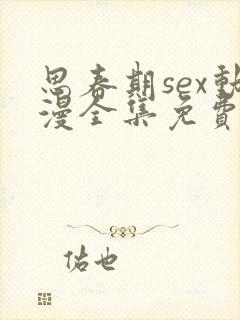 思春期sex動
漫全集免費
佑也